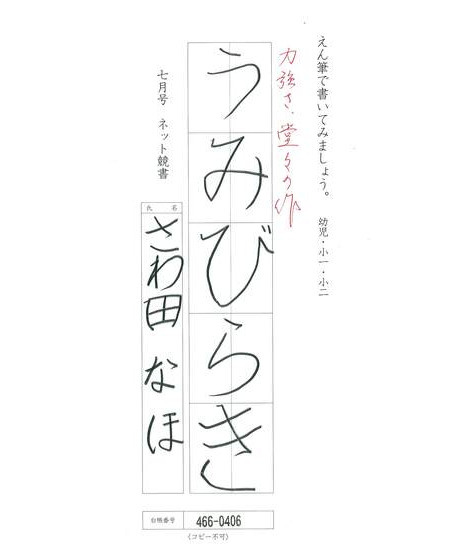 えん筆で書いてみましょう。 幼児・小一・小二
力強さ、堂々の作
うみびらき
七月号 ネット競書
氏名
さわ田 なほ
台帳番号 466-0406
〈コピー不可〉